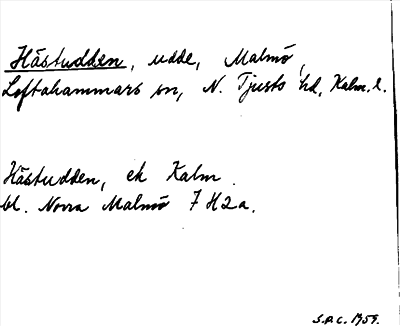 Hästudden, udde, Malmö,
Loftahammars sn, N. Tjusts hd, Kalm. l.
Hästudden, ek Kalm
bl. Norra Malmö 7 H2a.
S.P.C. 1959.